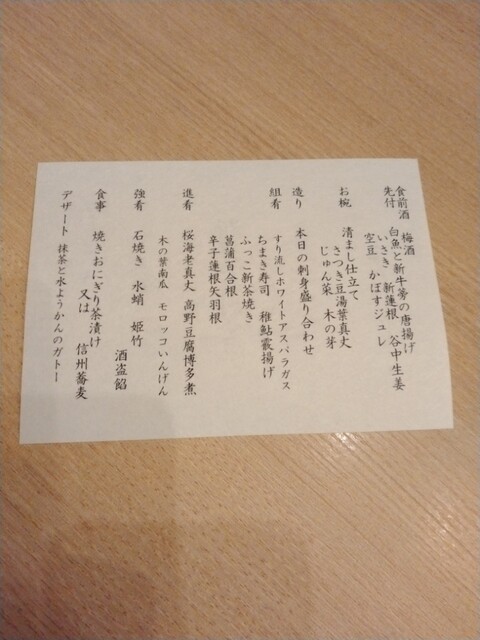 食前酒 梅酒
先付 白魚と新牛蒡の唐揚げ
いさき 新蓮根 谷中生姜
空豆 かぼすジュレ
お椀 清まし仕立て
きつき豆湯葉真丈
じゅん菜 木の芽
造り 本日の刺身盛り合わせ
組肴 すり流しホワイトアスパラガス
ちまき寿司 稚鮎霰揚げ
ふっこ新茶焼き
菖蒲百合根
辛子蓮根矢羽根
進肴 桜海老真丈 高野豆腐博多煮
木の葉南瓜 モロッコいんげん
強肴 石焼き 水蛸 姫竹
酒盗餡
食事 焼きおにぎり茶漬け
又は 信州蕎麦
デザート 抹茶と水ようかんのガトー